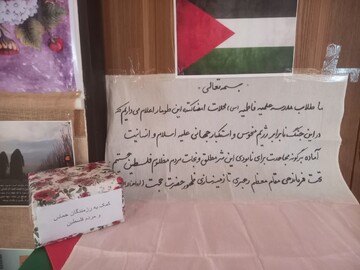 بسمه تعالی
ما طلاب مدرسه علمیه فاطمیه (س) محلات امضاکنندگان این طومار اعلام می داریم که
در این جنگ نابرابر رژیم منحوس و استکبار جهانی علیه اسلام و انسانیت
آماده هرگونه مجاهدت برای نابودی این شر مطلق و نجات مردم مظلوم فلسطین هستیم
تحت فرماندهی مقام معظم رهبری تا زمینه سازی ظهور حضرت حجت
کمک به رزمندگان حماس
و مردم فلسطین